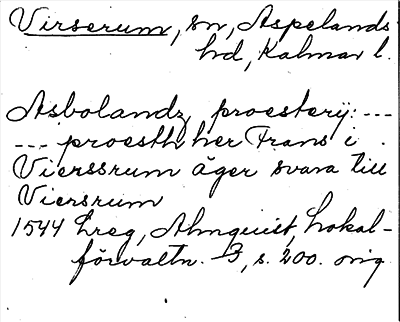 Virserum, sn, Aspelands
hd, Kalmar l.
Asbolandz proestery: ---
--- proesth her Frans i
Vierssrum äger svara till
Viersrum
1544 Lreg, Almquist, Lokal-
förvaltn. B, s. 200. orig.